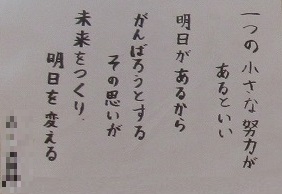 一つの 小さな 努力が
あるといい
明日があるから
がんばろうとする
その思いが
未来をつくり、
明日を変える